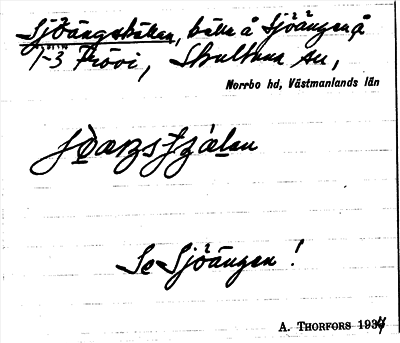 Sjöängsbäcken, bäck å Sjöängen å
1-3 Frövi, Skultuna sn,
Norrbo hd, Västmanlands län
Se Sjöängen!
A. THORFORS 1934